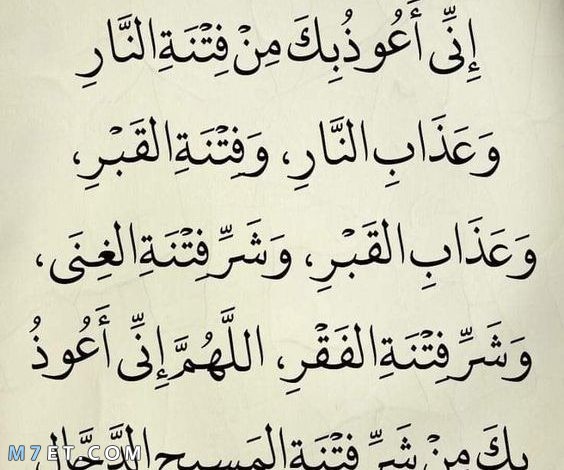 إِنِّي أَعُوذُ بِكَ مِنْ فِتْنَةِ النَّارِ
وَعَذَابِ النَّارِ، وَفِتْنَةِ القَبْرِ،
وَعَذَابِ القَبْرِ، وَشَرِّ فِتْنَةِ الغِنَى،
وَشَرِّ فِتْنَةِ الفَقْرِ، اللَّهُمَّ إِنِّي أَعُوذُ
بِكَ مِنْ شَرِّ فِتْنَةِ المَسِيحِ الدَّجَّالِ
M7ET.COM